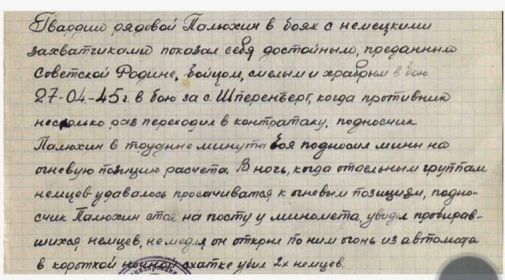 Гвардии рядовой Палюхин в боях с немецкими
захватчиками показал себя достойным, преданным
Советской Родине, бойцом, смелым и храбрым в бою
27-04-45г. в бою за с. Шперенберг, когда противник
несколько раз переходил в контратаку, подносчик
Палюхин в трудные минуты боя подносил мины на
огневую позицию расчета. В ночь, когда отдельным группам
немцев удавалось просачиватся к огневым позициям, подно-
счик Палюхин стоя на посту у миномета, увидя пробирав-
шихся немцев, немедля он открыл по ним огонь из автомата
в короткой ночной схатке убил 2х немцев.